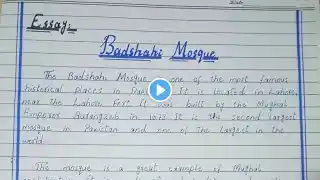 Date
Essay:
Badshahi Mosque
The Badshahi Mosque, one of the most famous
historical places in It is located in Lahore,
near the Lahore Fort It was built by the Mughal
Emperor Aurangzeb in 1673 It is the second largest
mosque in Pakistan and one of the largest in the
world.
The mosque is a great example of Mughal